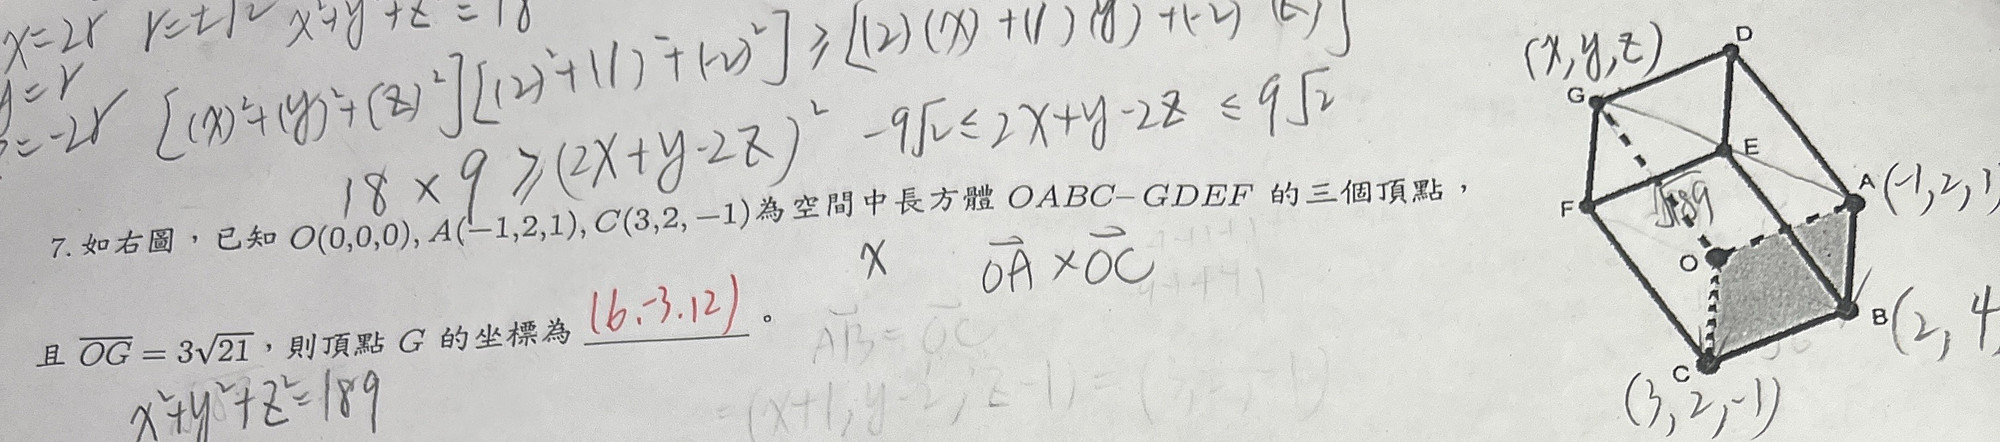 x=2r r=±√2 x²+y²+z²=18
y=r [(x)²+(y)²+(z)²][(2)²+(1)²+(-2)²]≥[(2)(x)+(1)(y)+(-2)(z)]²
z=-2r 18×9≥(2x+y-2z)² -9√2≤2x+y-2z≤9√2
7. 如右圖，已知 O(0,0,0), A(−1,2,1), C(3,2,−1)為空間中長方體 OABC−GDEF 的三個頂點，
x OA×OC
且 OG = 3√21，則頂點 G 的坐標為 (6.-3.12) 。
x²+y²+z²=189
AB=OC
=(x+1, y-2, z-1)=(3,2,-1)
(x,y,z)
D
G
E
A (-1,2,1)
F
√189
O
B (2, 4
C
(3,2,-1)